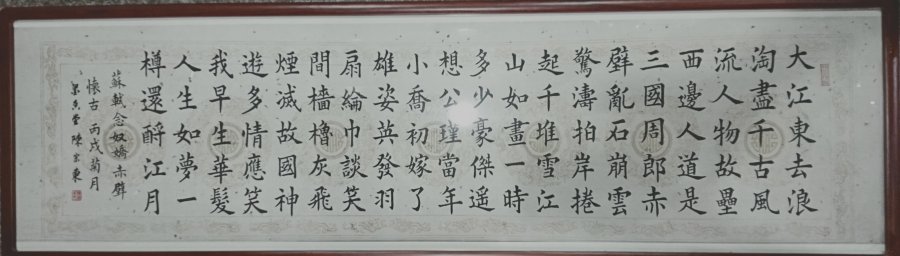 大江東去浪
淘盡千古風
流人物故壘
西邊人道是
三國周郎赤
壁亂石崩雲
驚濤拍岸捲
起千堆雪江
山如畫一時
多少豪傑遙
想公瑾當年
小喬初嫁了
雄姿英發羽
扇綸巾談笑
間檣櫓灰飛
煙滅故國神
遊多情應笑
我早生華髮
人生如夢一
樽還酹江月
蘇軾念奴嬌赤壁
懷古 丙戌菊月
陳